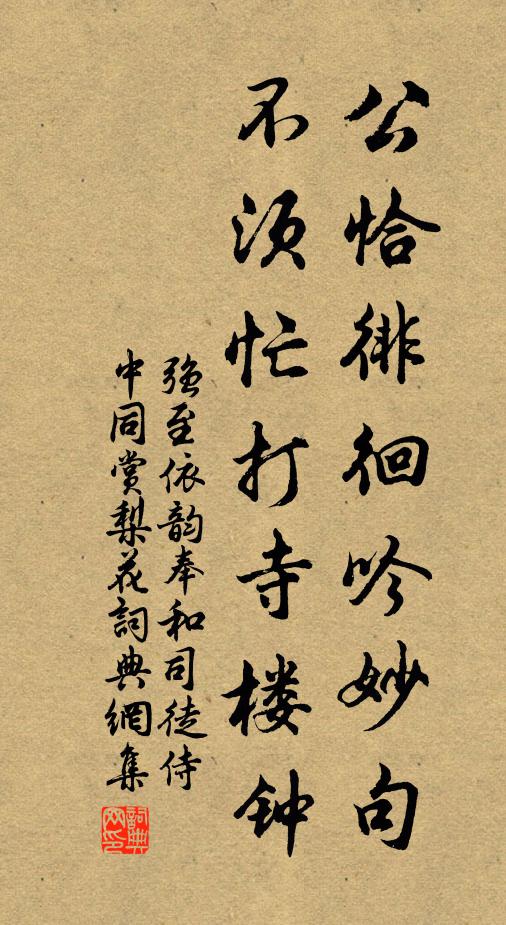 公恰徘徊吟妙句
不须忙打寺楼钟
强至依韵奉和司徒侍
中同賞梨花詞典網集
詞典网印